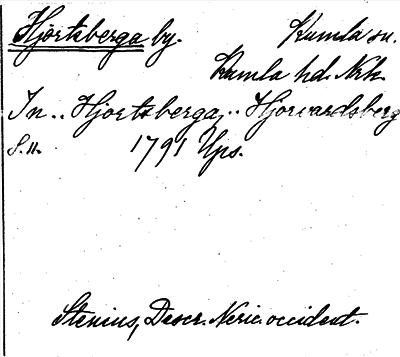 Hjortsberga by. Kumla sn.
Kumla hd. Nrk.
In .. Hjortsberga, .. Hjorvardsberg
S. 11. 1791 Ups.
Stenius, Descr. Neric. occident.